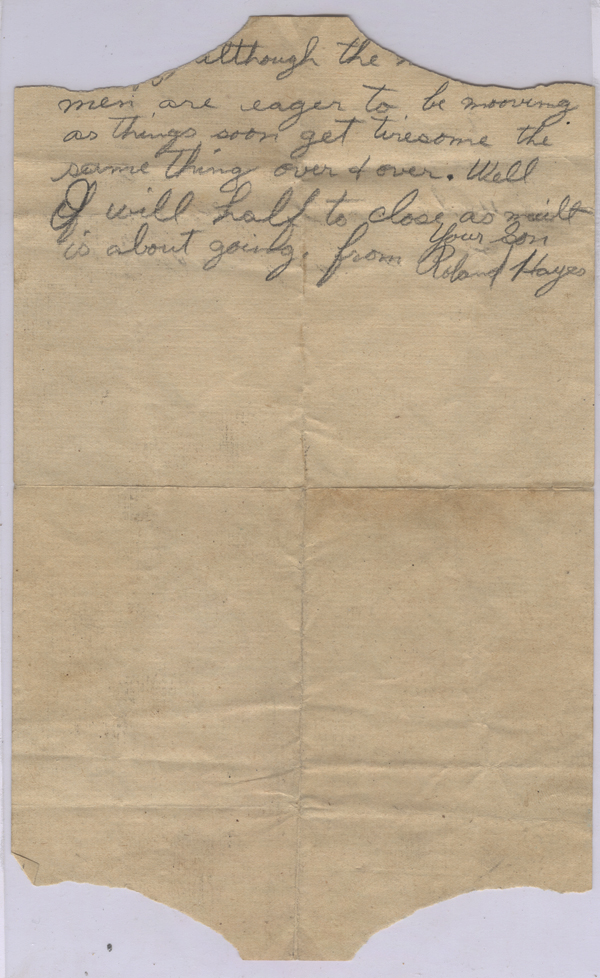 although the
men are eager to be mooving
as things soon get tiresome the
same thing over & over. Well
I will half to close as
is about going. from Your Son
Roland Hayes